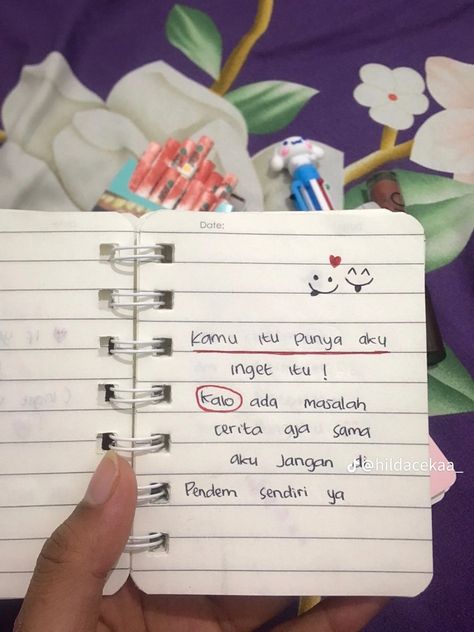 Date:
Kamu itu punya aku
inget itu !
Kalo ada masalah
cerita aja sama
aku Jangan di
@hildacekaa_
Pendem sendiri ya